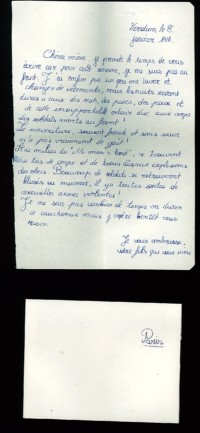 Verdun, le 8
février 1916.
Chère mère, je prends le temps de vous
écrire car pour cette semaine, je ne suis pas au
front. J'ai enfin pu un peu me laver et
changer de vêtements, mais les nuits restent
dures à cause des rats, des puces, des poux et
de cette insupportable odeur due aux corps
des soldats morts au front !
La nourriture, souvent froide et sans saveur
n'a pas vraiment de goût !
Au milieu du "No man's land", se trouvent
des tas de corps et de trous dus aux explosions
des obus. Beaucoup de soldats se retrouvent
blessés ou meurent, il y a toutes sortes de
nouvelles armes violentes !
Je ne sais pas combien de temps va durer
ce cauchemar mais j'espère bientôt vous
revoir.
Je vous embrasse,
votre fils qui vous aime
Paris